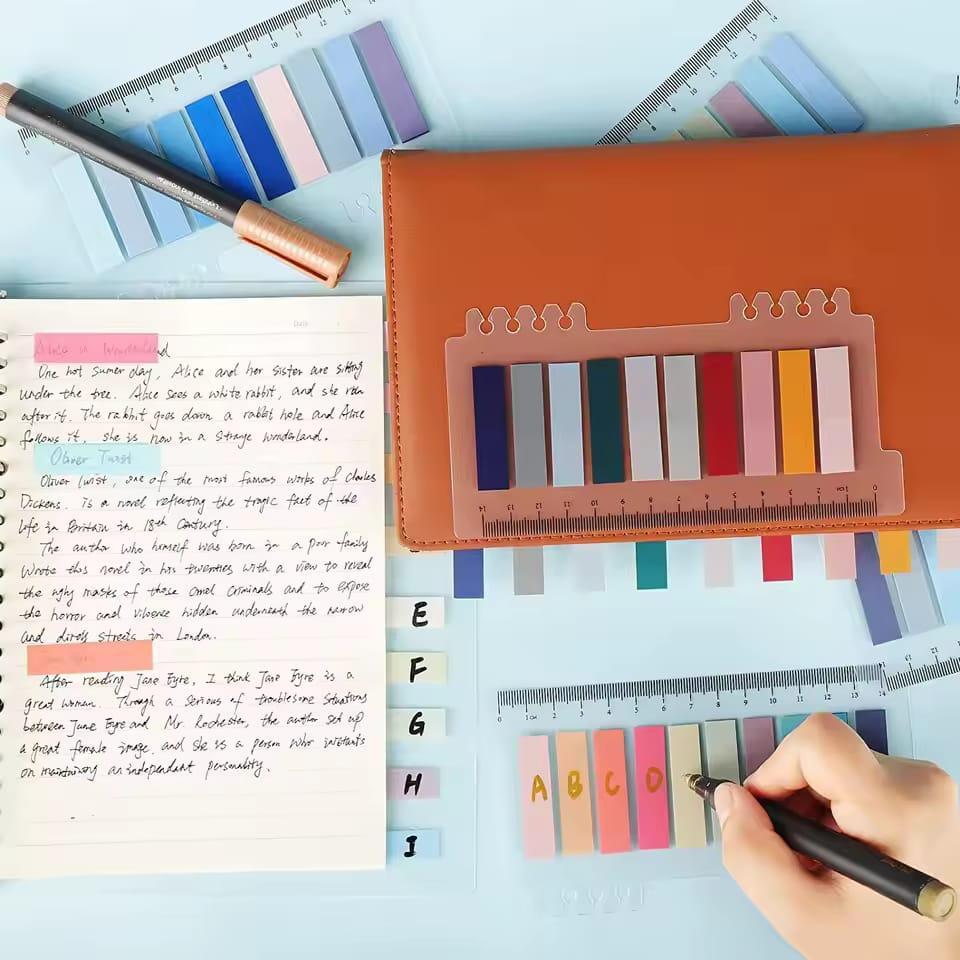 Date
Alice in Wonderland
One hot sumer day, Alice and her sister are sitting
under the tree. Alice sees a white rabbit, and she run
after it. The rabbit goes down a rabbit hole and Alice
follows it, she is now in a strange wonderland.
Oliver Twist
Oliver Twist, one of the most famous works of Charles
Dickens. is a novel reflecting the tragic fact of the
life in Britain in 18th Century.
The author who himself was born in a poor family
wrote this novel in his twenties with a view to reveal
the ugly masks of those cruel criminals and to expose
the horror and violence hidden underneath the narrow
and dirty streets in London.
After reading Jane Eyre, I think Jane Eyre is a
great woman. Through a serious of troublesome situations
between Jane Eyre and Mr. Rochester, the author set up
a great female image. and she is a person who
on maintaining an independant personality.
E
F
G
H
I
14 13 12 11 10 9 8 7 6 5 4 3 2 1cm 0
0 1cm 2 3 4 5 6 7 8 9 10 11 12 13 14
A B C D